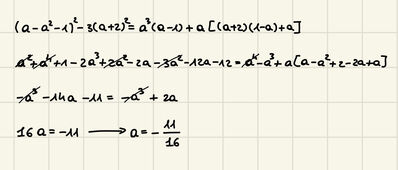 (a-a²-1)²-3(a+2)²=a³(a-1)+a[(a+2)(1-a)+a]
a²+a⁴+1-2a³+2a²-2a-3a²-12a-12=a⁴-a³+a[a-a²+2-2a+a]
-a³-14a-11=-a³+2a
16a=-11 ⟶ a=-11/16